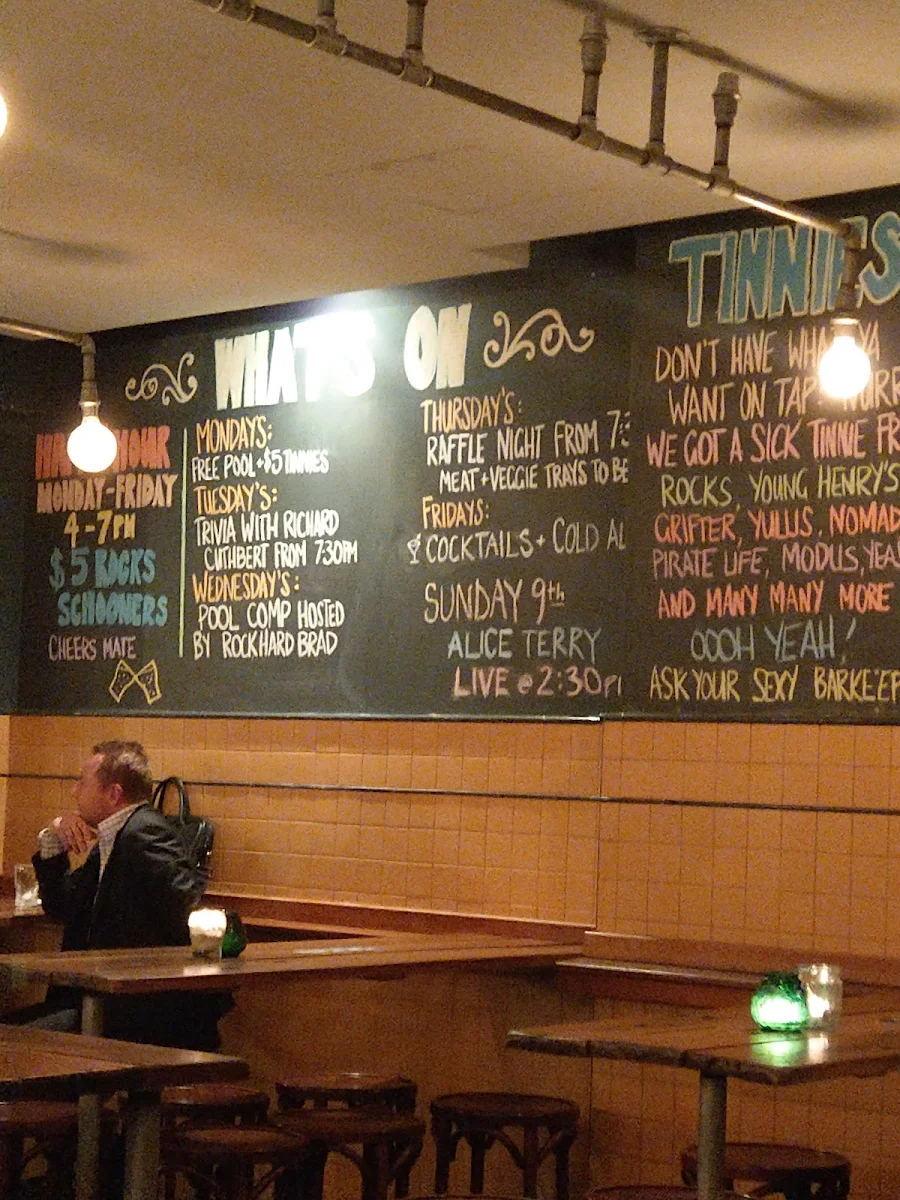 WHAT'S ON
HAPPY HOUR
MONDAY-FRIDAY
4-7PM
$5 ROCKS
SCHOONERS
CHEERS MATE
MONDAY'S:
FREE POOL + $5 TINNIES
TUESDAY'S:
TRIVIA WITH RICHARD
CUTHBERT FROM 7:30PM
WEDNESDAY'S:
POOL COMP HOSTED
BY ROCKHARD BRAD
THURSDAY'S:
RAFFLE NIGHT FROM 7:
MEAT + VEGGIE TRAYS TO BE
FRIDAYS:
COCKTAILS + COLD
SUNDAY 9th
ALICE TERRY
LIVE @ 2:30
TINNIES
DON'T HAVE YA
WANT ON TAP?
WE GOT A SICK TINNIE
ROCKS, YOUNG HENRY'S
GRIFTER, YULLIS, NOMAD
PIRATE LIFE, MODUS,
AND MANY MANY MORE
OOOH YEAH!
ASK YOUR SEXY BARKEEP